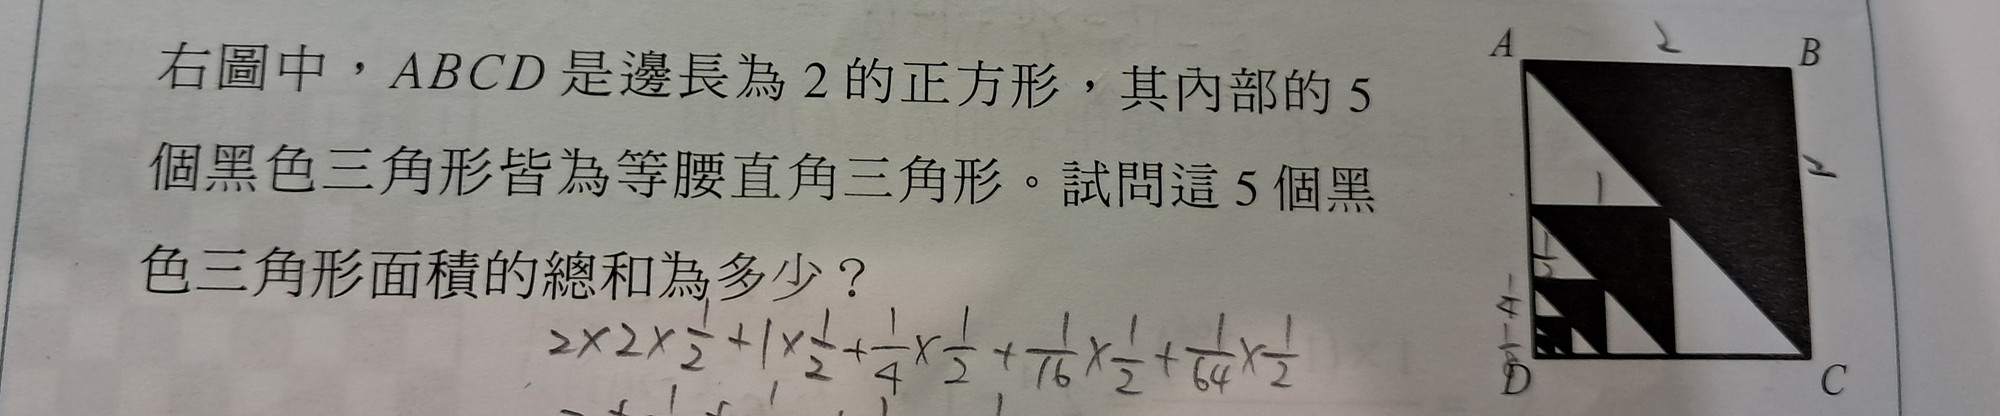 右圖中，ABCD 是邊長為 2 的正方形，其內部的 5
個黑色三角形皆為等腰直角三角形。試問這 5 個黑
色三角形面積的總和為多少？
2×2×1/2+1×1/2+1/4×1/2+1/16×1/2+1/64×1/2
A
2
B
2
1
1/2
1/4
1/8
D
C